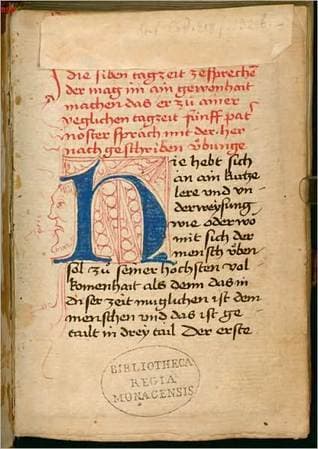 die siben tagzeit zesprechē
der mag im ain gewonhait
machen das er zů ainer
yeglichen tagzeit fünff pat
noster sprach mit der her
nach geschriben übunge
Hie hebt sich
an ain kurtze
lere vnd vn
derweysung
wie oder wo
mit sich der
mensch üben
sol zů seiner höchsten vol
komenhait als denn das in
diser zeit muglichen ist dem
menschen vnd das ist ge
tailt in drey tail Der erste
BIBLIOTHECA
REGIA
MONACENSIS